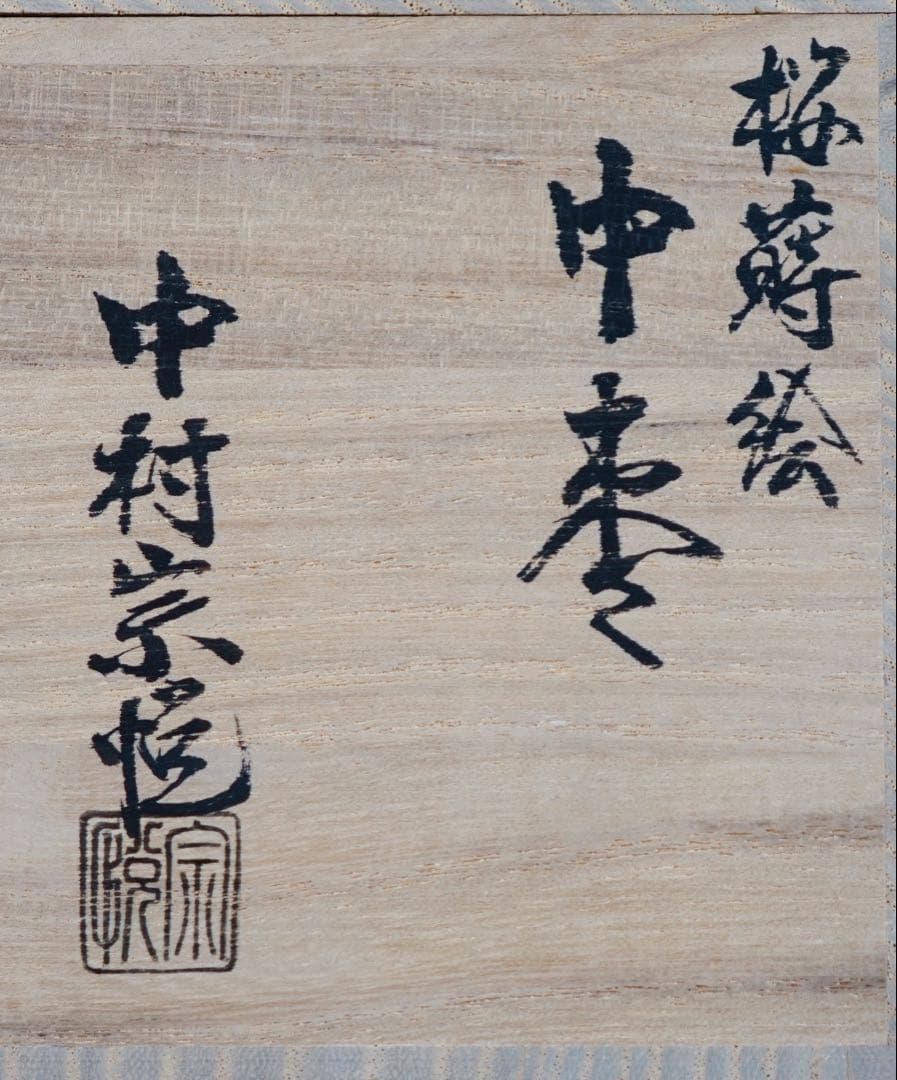 桜蒔絵
中棗
中村宗悦
宗悦